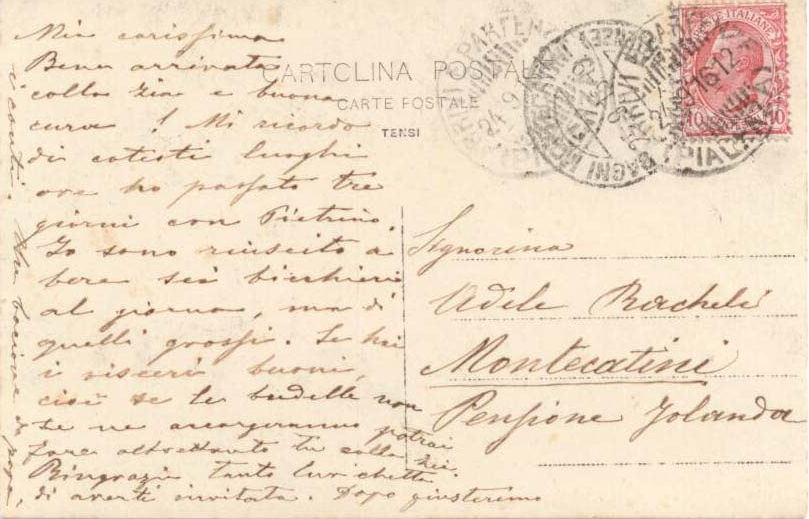 Mia carissima
Bene arrivata
colla zia e buona
cura! Mi ricordo
di cotesti luoghi
ove ho passato tre
giorni con Pietrino.
Io sono riuscito a
bere sei bicchieri
al giorno, ma di
quelli grossi. Se hai
i visceri buoni,
cioè se le budelle non
se ne accorgeranno potrai
fare altrettanto tu colla zia.
Ringrazia tanto
di averti invitata. Dopo giusteremo
i conti. Un bacione da papà
CARTOLINA POSTALE
CARTE POSTALE
TENSI
POSTE ITALIANE
10 10
ARRIVI PARTENZE
24.9
BAGNI
ARRIVI
16.12
Signorina
Adele Racheli
Montecatini
Pensione Jolanda